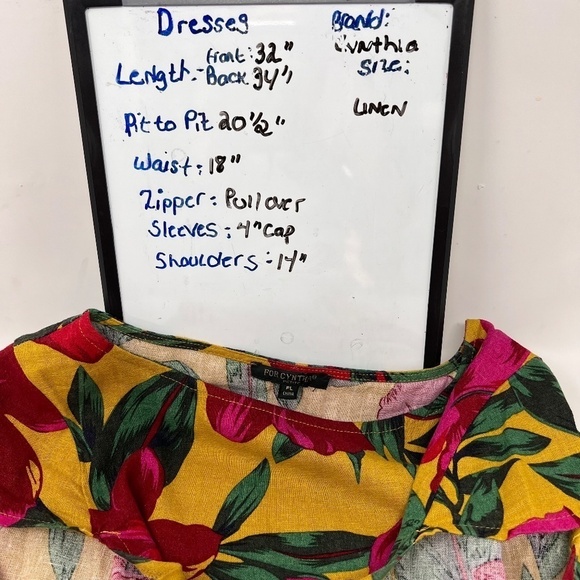 Dresses
Length:- Front: 32"
Back 34"
Pit to Pit 20 1/2"
Waist: 18"
Zipper: Pullover
Sleeves: 4" Cap
Shoulders:- 14"
Brand:
Cynthia
Size:
LINEN
FOR CYNTHIA
PL